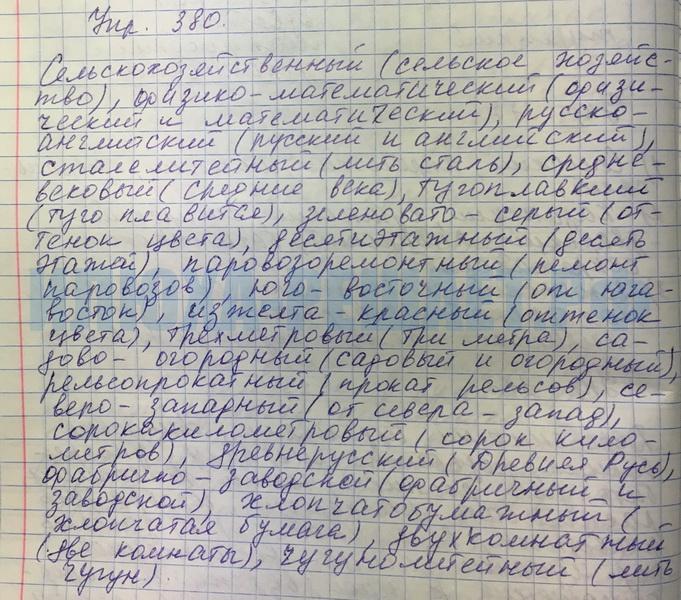 Упр. 380.
Сельскохозяйственный (сельское хозяйс-
тво), физико-математический (физи-
ческий и математический), русско-
английский (русский и английский),
сталелитейный (лить сталь), средне-
вековый (средние века), тугоплавкий
(туго плавится), зеленовато-серый (от-
тенок цвета), десятиэтажный (десять
этажей), паровозоремонтный (ремонт
паровозов), юго-восточный (от юга-
восток), изжелта-красный (оттенок
цвета), трёхметровый (три метра), са-
дово-огородный (садовый и огородный),
рельсопрокатный (прокат рельсов), се-
веро-западный (от севера-запад),
сорокакилометровый (сорок кило-
метров), древнерусский (Древняя Русь),
фабрично-заводской (фабричный и
заводской), хлопчатобумажный (
хлопчатая бумага), двухкомнатный
(две комнаты), чугунолитейный (лить
чугун).